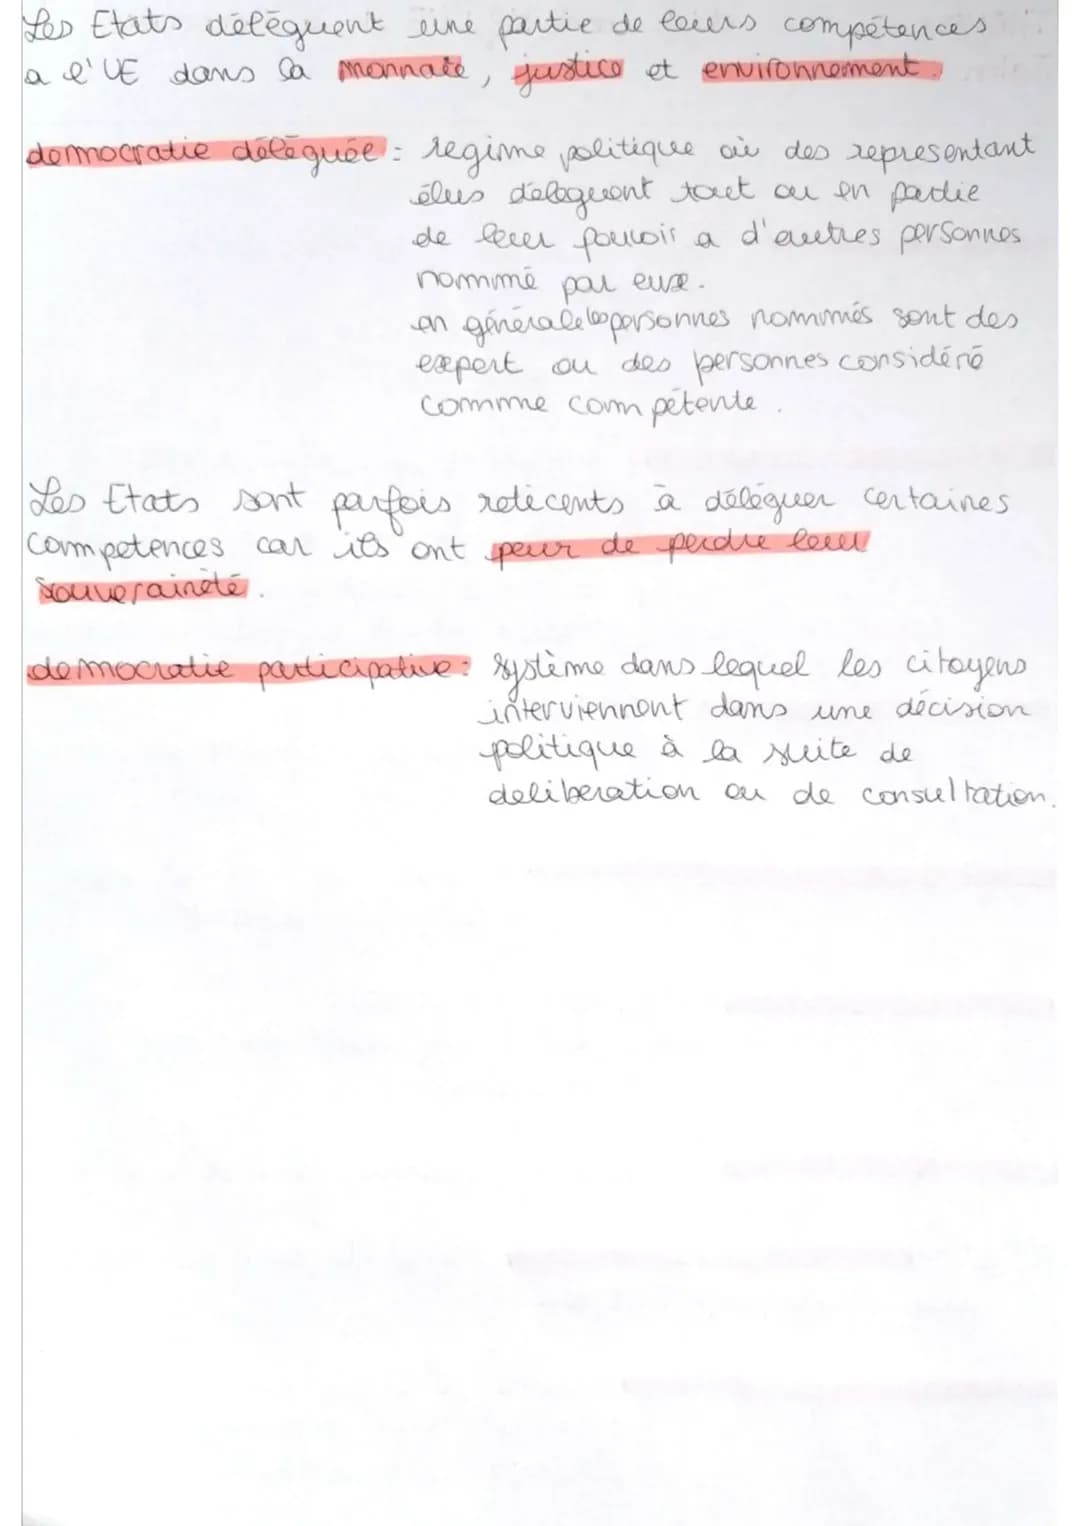 Les Etats délèguent une partie de leurs compétences
a l'UE dans la monnaie, justice et environnement.
democratie déléguée : regime politique où des representant
élus délèguent tout ou en partie
de leur pouvoir a d'autres personnes
nommé par eux.
en générale les personnes nommés sont des
expert ou des personnes considéré
comme compétente.
Les Etats sont parfois reticents à déléguer certaines
competences car ils ont peur de perdre leur
souveraineté.
democratie participative : système dans lequel les citoyens
interviennent dans une décision
politique à la suite de
deliberation ou de consultation.